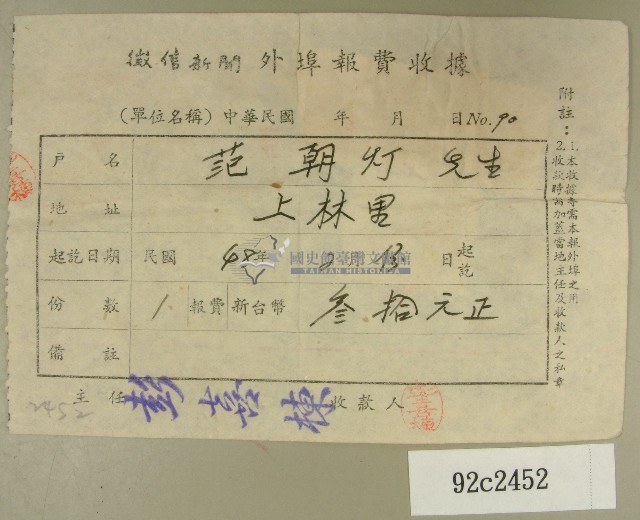 徵信新聞 外埠報費收據
(單位名稱) 中華民國 年 月 日 No. 90
戶名 范朝灯 先生
地址 上林里
起訖日期 民國 48年 月 日 起訖
國史館臺灣文獻館
TAIWAN HISTORICA
份數 1 報費 新台幣 叁拾元正
備註
主任 彭喜棟 收款人
2452
附註：
1.本收據專需本報外埠之用
2.收款時需加蓋當地主任及收款人之私章
92c2452